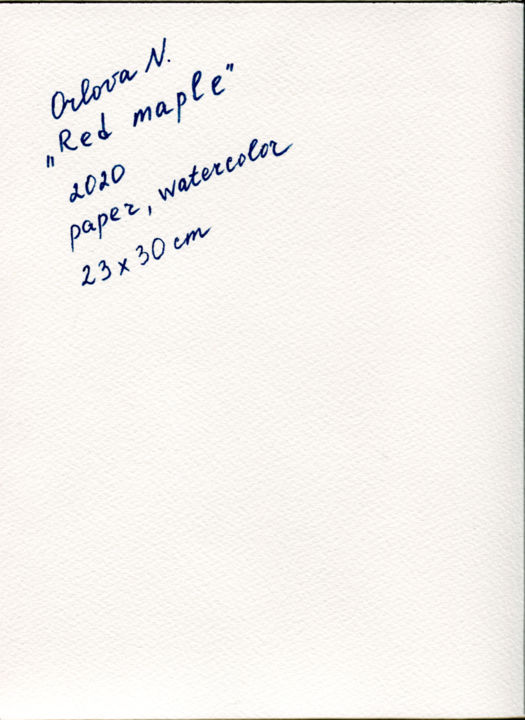 Orlova N.
„Red maple"
2020
paper, watercolor
23 x 30 cm